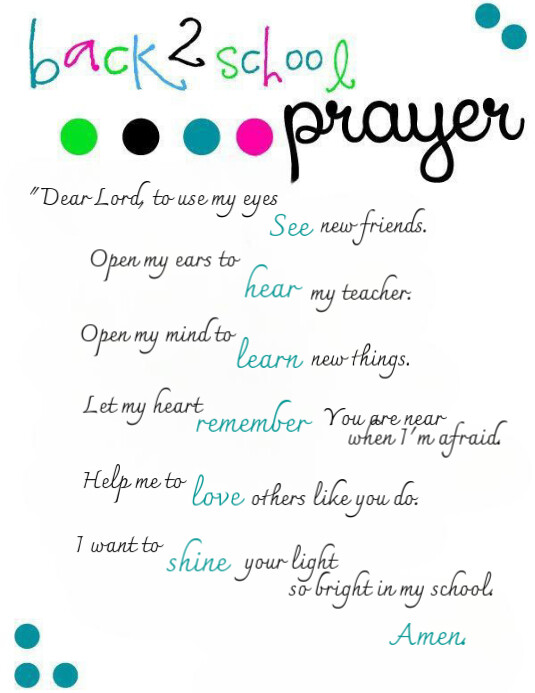 back 2 school
prayer
"Dear Lord, to use my eyes
See new friends.
Open my ears to
hear my teacher.
Open my mind to
learn new things.
Let my heart
remember You are near
when I'm afraid.
Help me to
love others like you do.
I want to
shine your light
so bright in my school.
Amen.